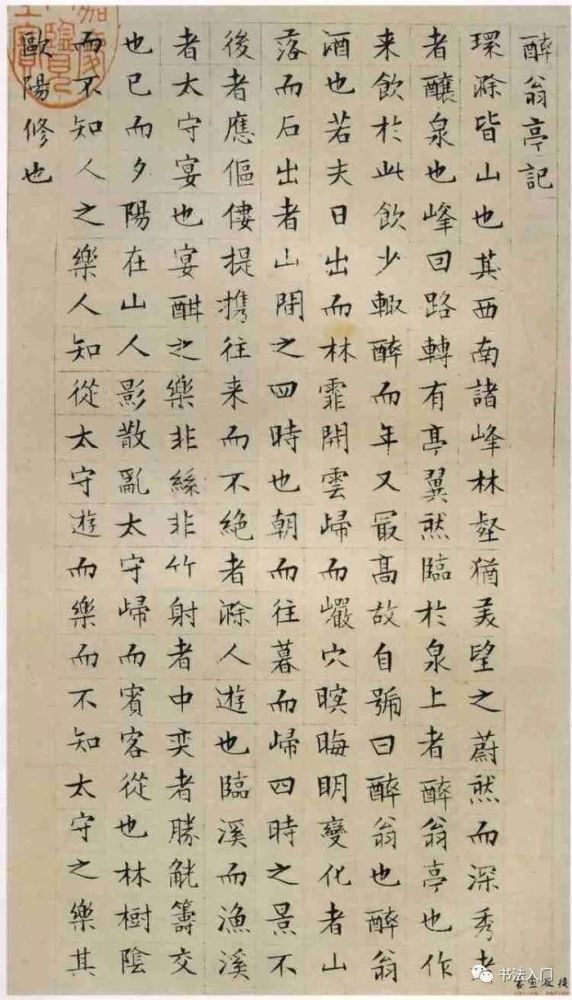 醉翁亭記
環滁皆山也其西南諸峰林壑猶美望之蔚然而深秀者
者釀泉也峰回路轉有亭翼然臨於泉上者醉翁亭也作
来飲於此飲少輒醉而年又最高故自號曰醉翁也醉翁
酒也若夫日出而林霏開雲歸而巖穴暝晦明變化者山
落而石出者山間之四時也朝而往暮而歸四時之景不
後者應傴僂提攜往来而不絕者滁人遊也臨溪而漁溪
者太守宴也宴酣之樂非絲非竹射者中奕者勝觥籌交
也已而夕陽在山人影散亂太守歸而賓客從也林樹陰
而不知人之樂人知從太守遊而樂而不知太守之樂其
歐陽修也
书法入门